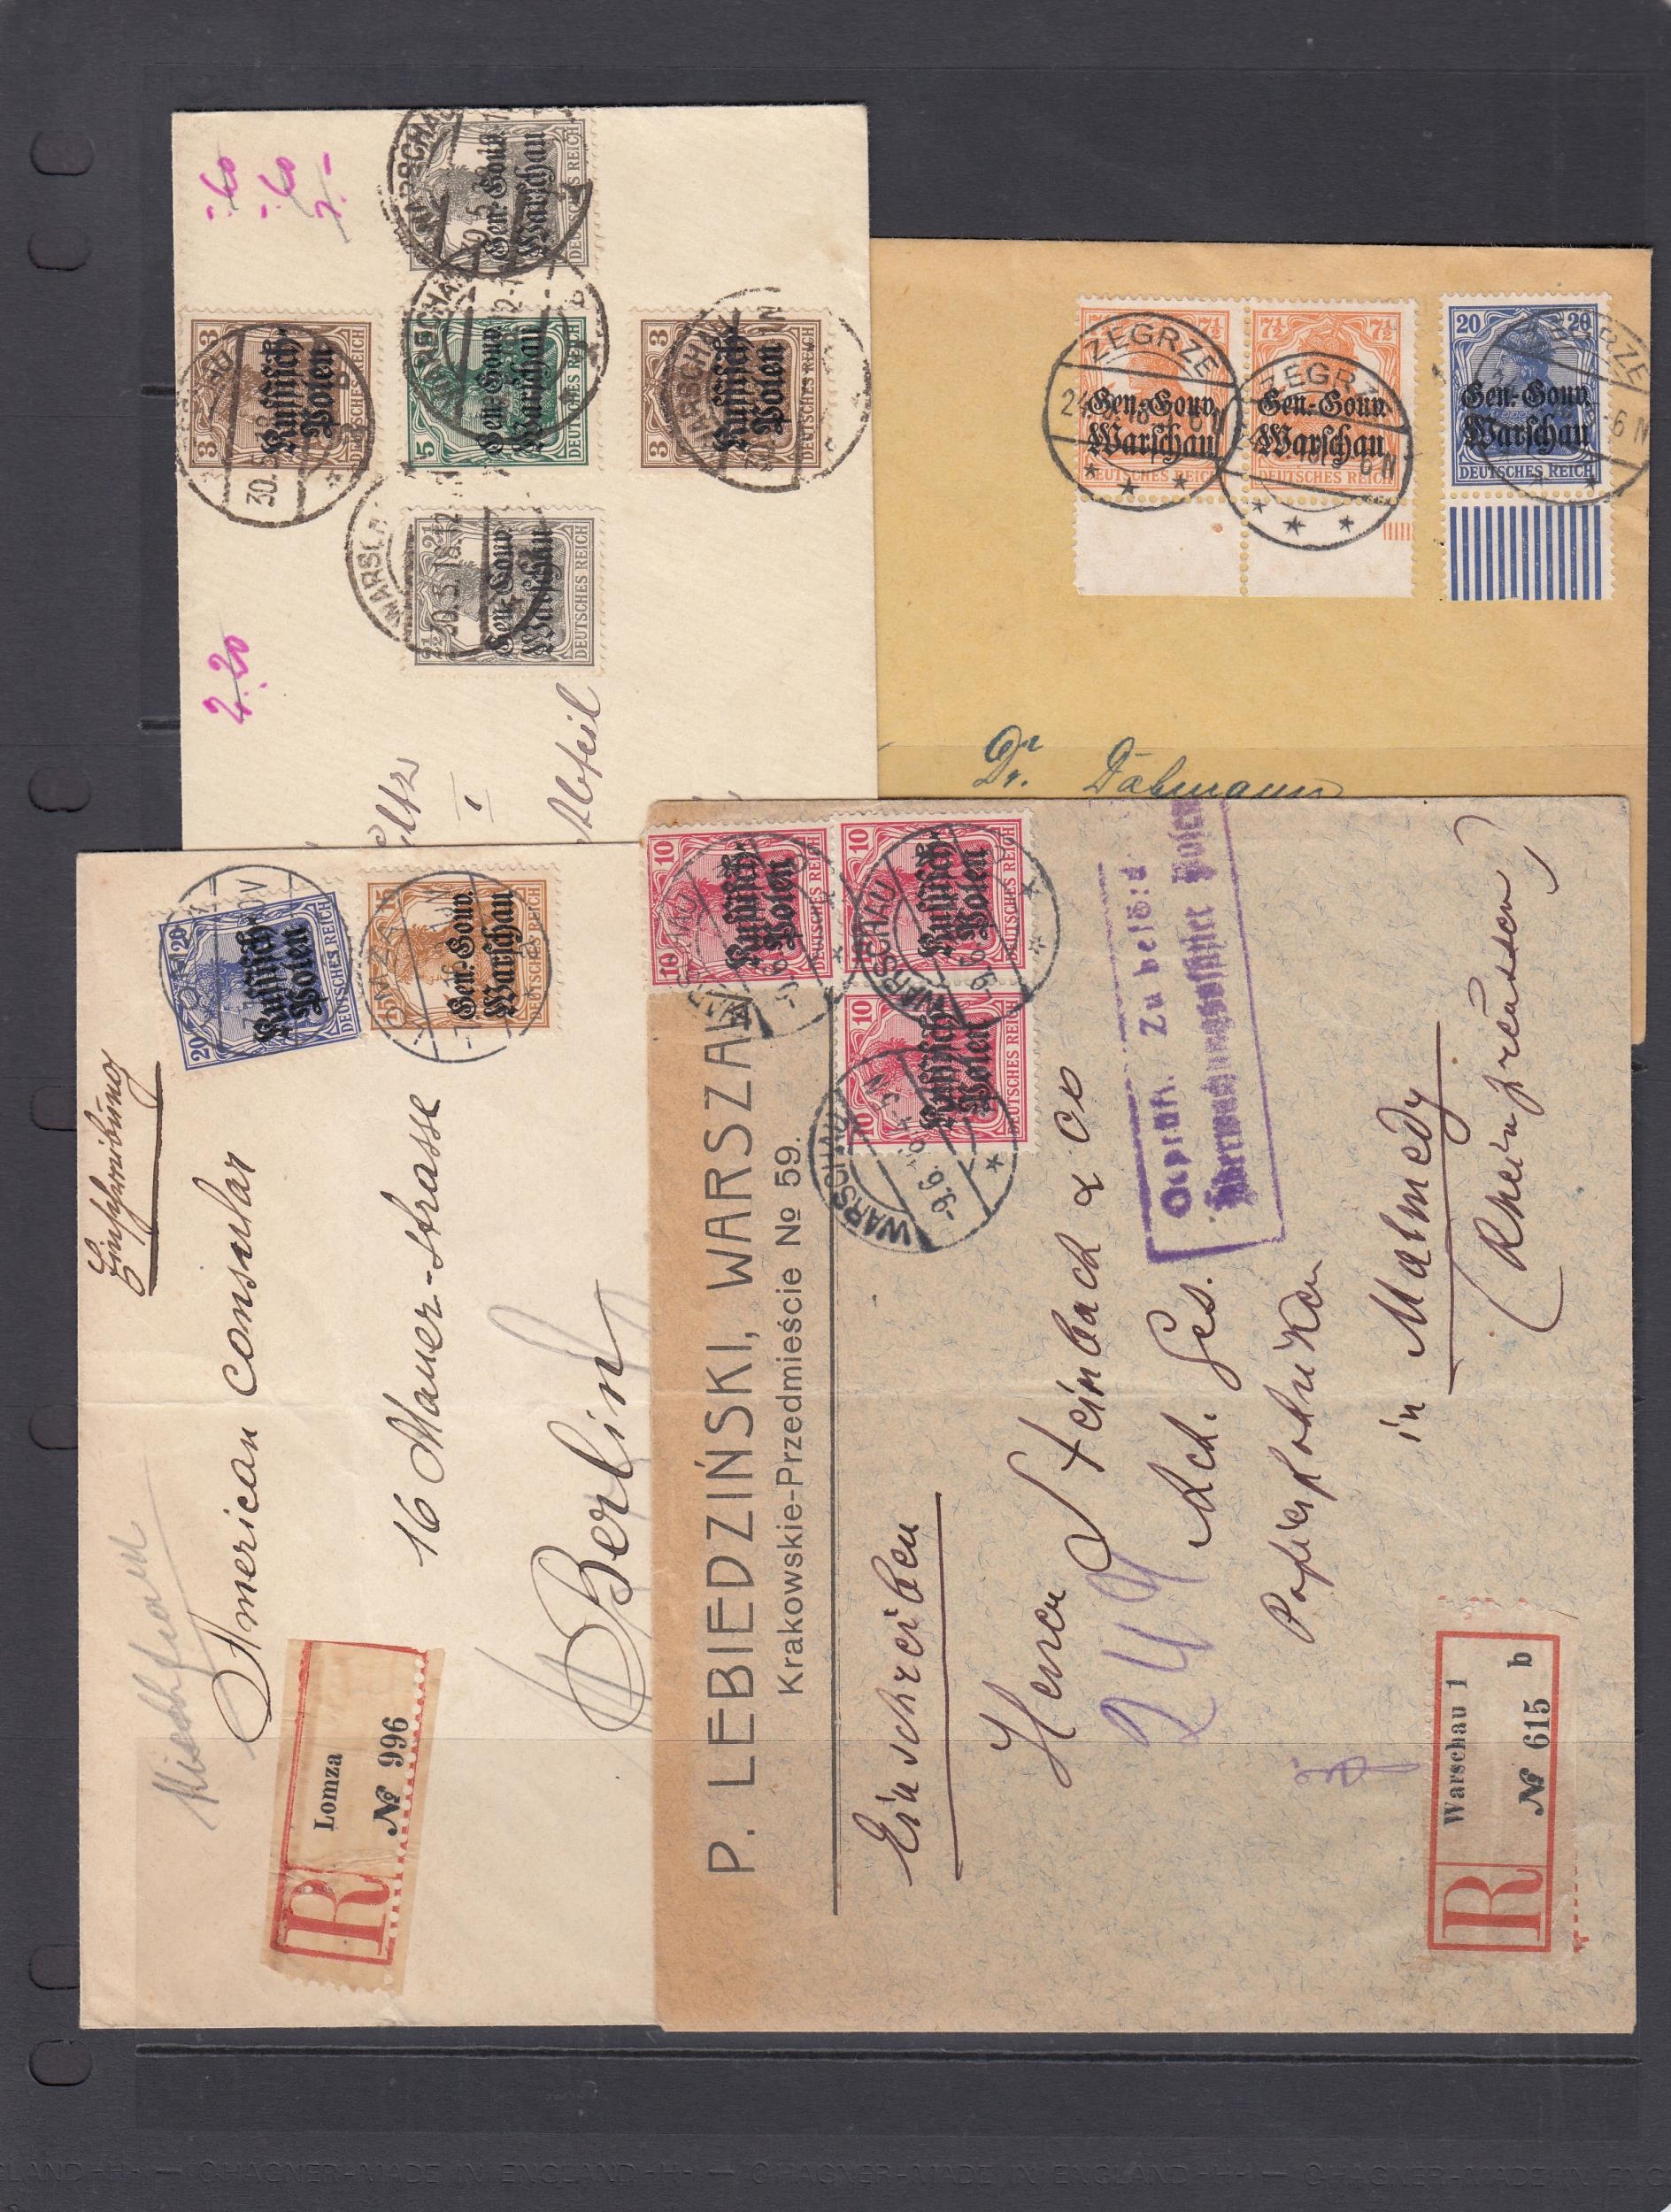 -.60
-.60
2.-
2.20
WARSCHAU
Gen.-Gouv.
Warschau
DEUTSCHES REICH
3 3
Russisch-
Polen
DEUTSCHES REICH
5
Gen.-Gouv.
Warschau
DEUTSCHES REICH
WARSCHAU
3 3
Russisch-
Polen
DEUTSCHES REICH
WARSCHAU
2½ 2½
Gen.-Gouv.
Warschau
DEUTSCHES REICH
30.5.18.12
7½ 7½
Gen.-Gouv.
Warschau
DEUTSCHES REICH
ZEGRZE
7½ 7½
Gen.-Gouv.
Warschau
DEUTSCHES REICH
ZEGRZE
20 20
Gen.-Gouv.
Warschau
DEUTSCHES REICH
ZEGRZE
Dr. Dahmann
20 20
Russisch-
Polen
DEUTSCHES REICH
15
Gen.-Gouv.
Warschau
DEUTSCHES REICH
Einschreibung
American Consular
16 Mauer-Strasse
Berlin
Lomza
№ 996
R
10 10
Russisch-
Polen
DEUTSCHES REICH
10
Russisch-
Polen
DEUTSCHES REICH
10 10
Russisch-
Polen
DEUTSCHES REICH
WARSCHAU
-9.6.
P. LEBIEDZIŃSKI, WARSZAWA
Krakowskie-Przedmieście № 59.
Geprüft. Zu beförd
Überwachungsoffizier Posen
Einschreiben
Steinbach & Co
Act. Ges.
Papierfabriken
in Malmedy
(Rheinpreussen)
249
Warschau 1
b
№ 615
R
CHAGNER-MADE IN ENGLAND-H-